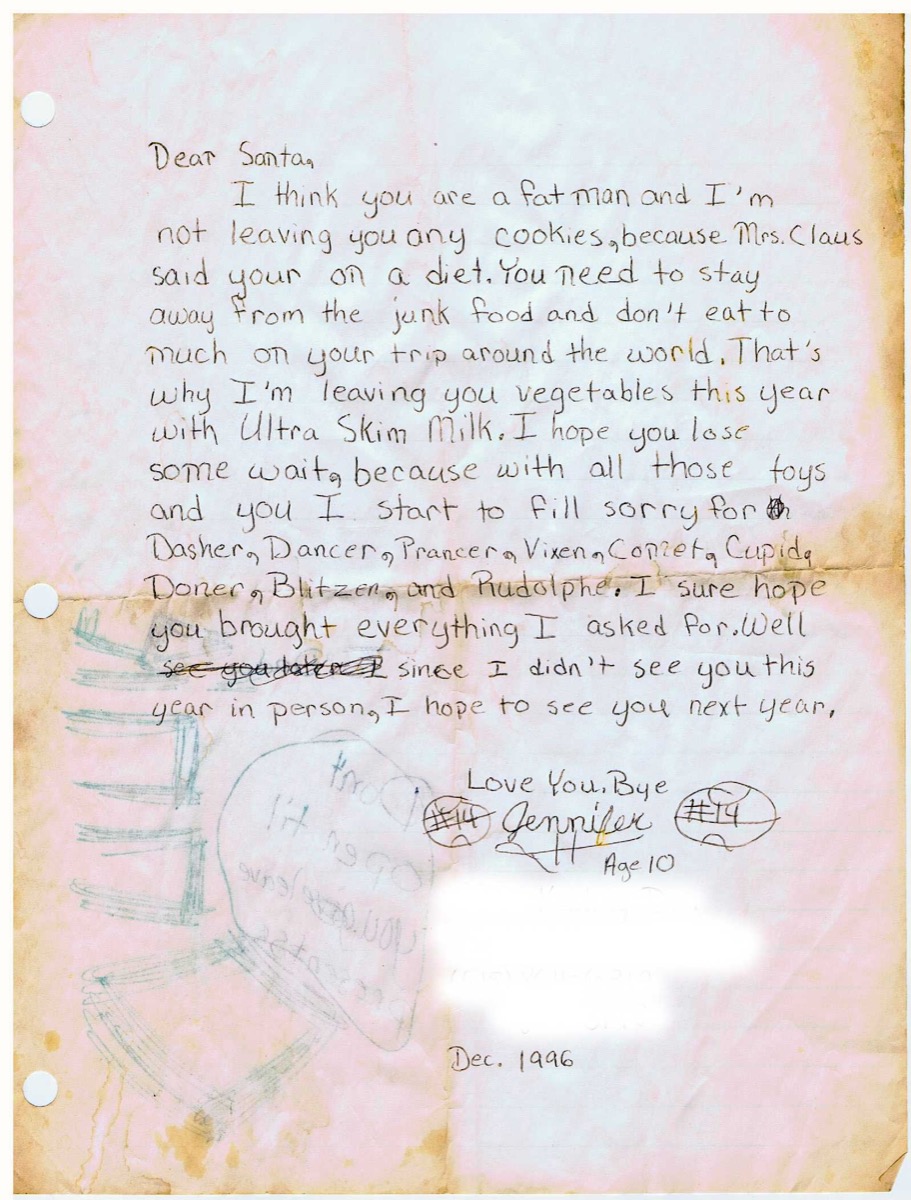 Dear Santa,
I think you are a fat man and I'm
not leaving you any cookies, because Mrs. Claus
said your on a diet. You need to stay
away from the junk food and don't eat to
much on your trip around the world. That's
why I'm leaving you vegetables this year
with Ultra Skim Milk. I hope you lose
some wait, because with all those toys
and you I start to fill sorry for
Dasher, Dancer, Prancer, Vixen, Comet, Cupid,
Doner, Blitzen, and Rudolphe. I sure hope
you brought everything I asked for. Well
see you later I since I didn't see you this
year in person, I hope to see you next year.
Love You, Bye
#14 Jennifer #14
Age 10
Don't
open til
you leave
Dec. 1996